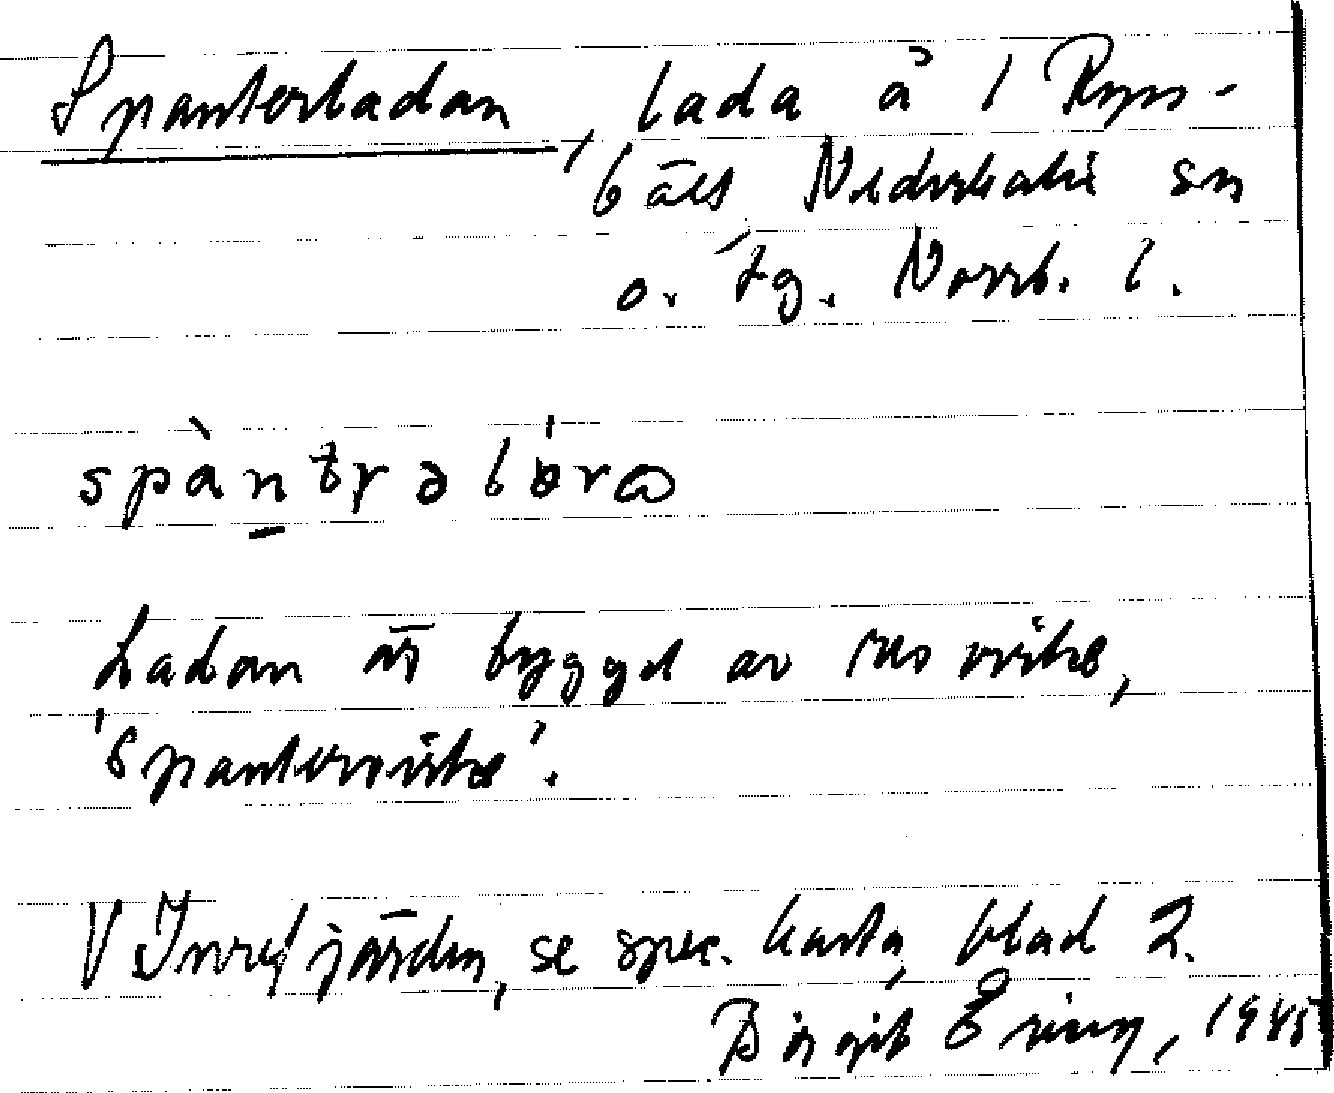 Spanterladan, lada å 1 Ryss-
bält Nederkalix sn
o. tg. Norrb. l.
Ladan är bygd av res virke,
'Spantervirke'.
V Inrefjärden, se spec. karta, blad 2.
Birgit Ering, 1985